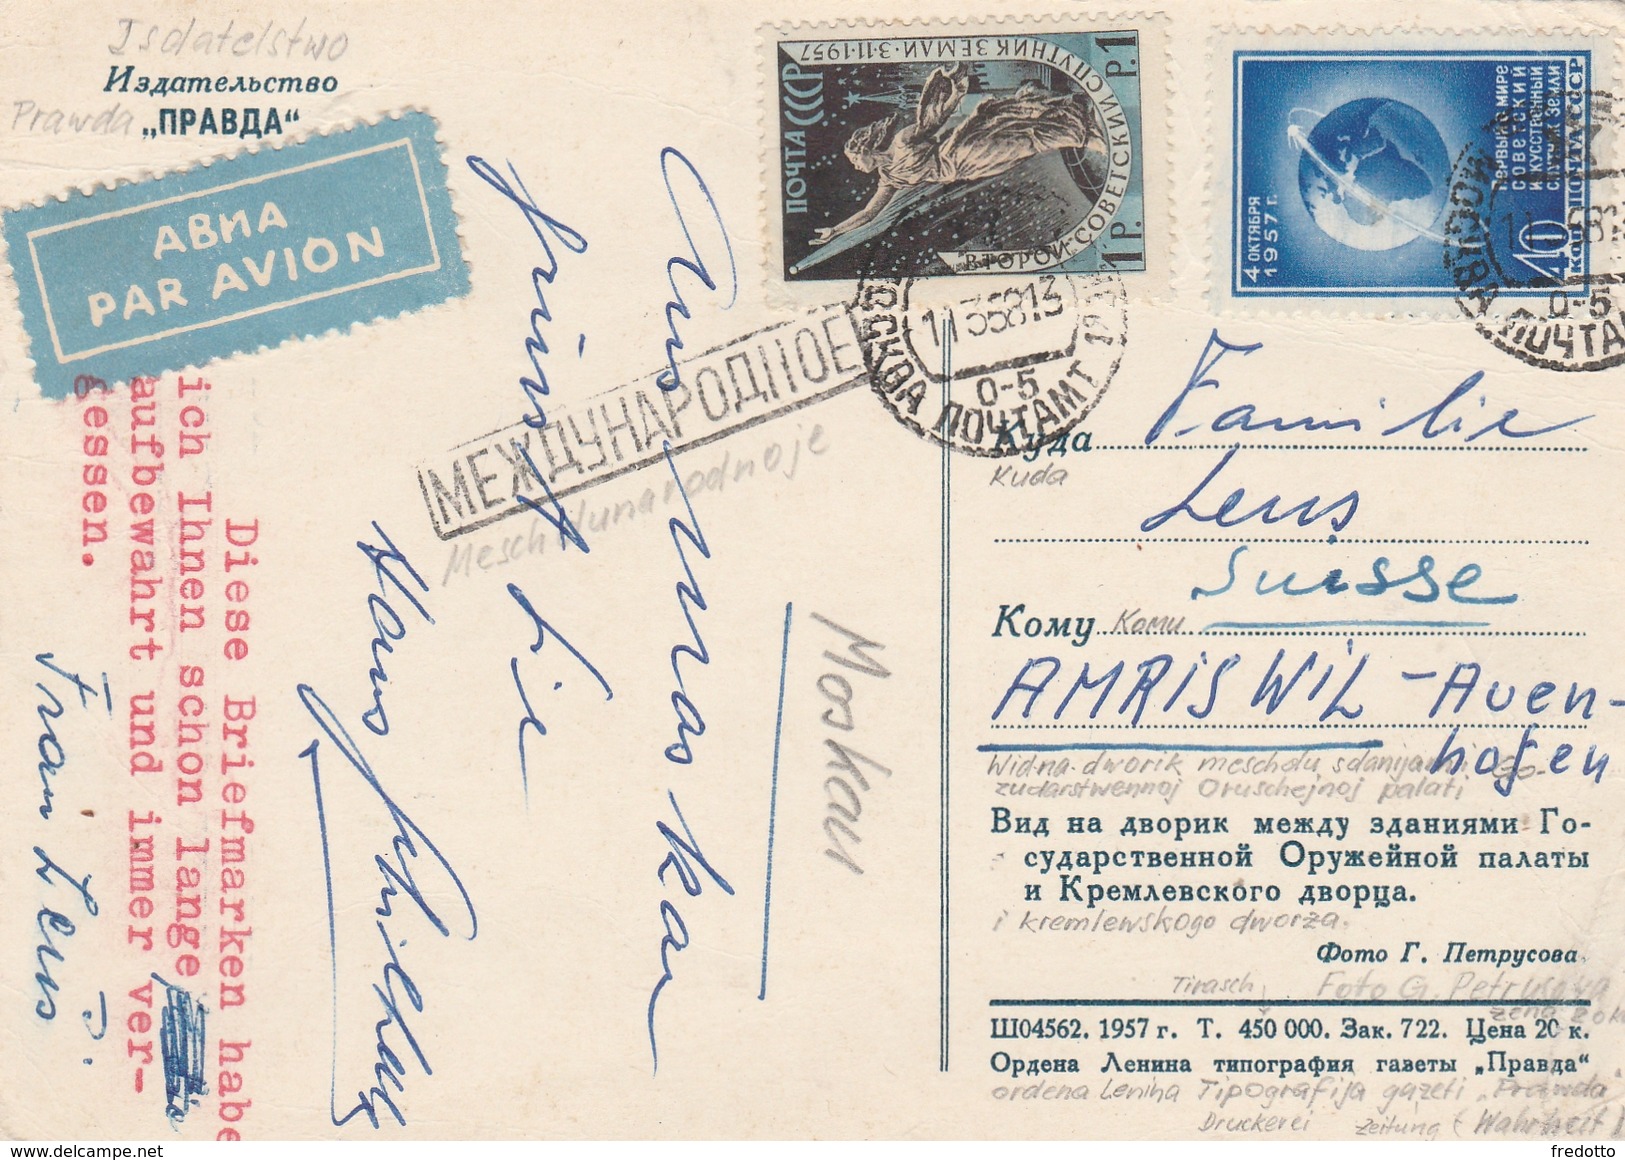 Isdatelstwo
Издательство
Prawda „ПРАВДА“
АВИА
PAR AVION
Diese Briefmarken habe
ich Ihnen schon lange
aufbewahrt und immer ver-
gessen.
Frau Leus
Aus Moskau
grüsst Sie
Hans
Moskau
МЕЖДУНАРОДНОЕ
Meschdunarodnoje
ПОЧТА СССР
ВТОРОЙ СОВЕТСКИЙ СПУТНИК ЗЕМЛИ·3·11·1957
1 Р. Р.1
МОСКВА ПОЧТАМТ
11358.13
0-5
4 ОКТЯБРЯ
1957 г.
ПЕРВЫЙ В МИРЕ
СОВЕТСКИЙ
ИСКУССТВЕННЫЙ
СПУТНИК ЗЕМЛИ
40 КОП ПОЧТА СССР
МОСКВА ПОЧТАМТ
0-5
Куда Familie
Kuda
Leus
Suisse
Кому Komu
AMRISWIL - Auen-
hofen
Widna dworik meschdu sdanijami Go-
sudarstwennoj Oruschejnoj palati
Вид на дворик между зданиями Го-
сударственной Оружейной палаты
и Кремлевского дворца.
i kremlewskogo dworza.
Фото Г. Петрусова
Tirasch Foto G. Petrusowa
zena 20 k
Ш04562. 1957 г. Т. 450 000. Зак. 722. Цена 20 к.
Ордена Ленина типография газеты „Правда“
ordena Lenina Tipografija gazeti „Prawda“
Druckerei Zeitung (Wahrheit)
fredotto